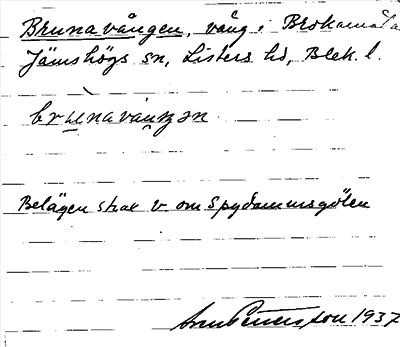 Brunavången, vång i Brokamåla
Jämshögs sn, Listers hd, Blek. l.
brunavåŋŋən
Belägen strax v om Spydammsgölen
Pettersson 1937